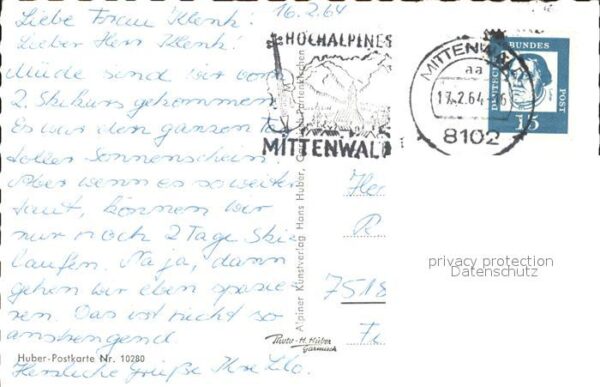 16.2.64
Liebe Frau Klenk!
Lieber Herr Klenk!
Müde sind wir vom
2. Skikurs gekommen.
Es war den ganzen T
toller Sonnenschein.
Aber wenn es so weiter
taut, können wir
nur noch 2 Tage Ski
laufen. Na ja, dann
gehen wir eben spazie-
ren. Das ist nicht so
anstrengend
Herzliche Grüße Ihre Lilo.
Huber-Postkarte Nr. 10280
Alpiner Kunstverlag Hans Huber, Garmisch-Partenkirchen
HOCHALPINES
MITTENWALD
MITTENWALD
aa
17.2.64
8102
DEUTSCHE
BUNDES
POST
15
7518
Photo-H. Huber
Garmisch
privacy protection
Datenschutz